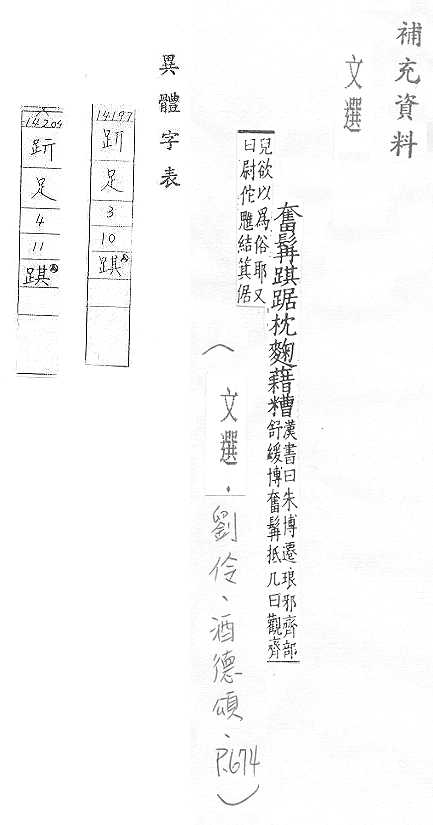 補充資料
文選
奮髯踑踞枕麴藉糟
漢書曰朱博遷琅邪齊部
舒緩博奮髯抵几曰觀齊
兒欲以爲俗耶又
曰尉佗魋結箕倨
(文選.劉伶、酒德頌、P.674)
異體字表
14197
足
3
10
踑
足
4
11
踑